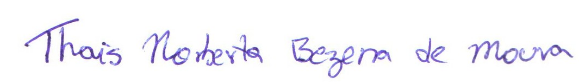 Thais Norberta Bezerra de Moura